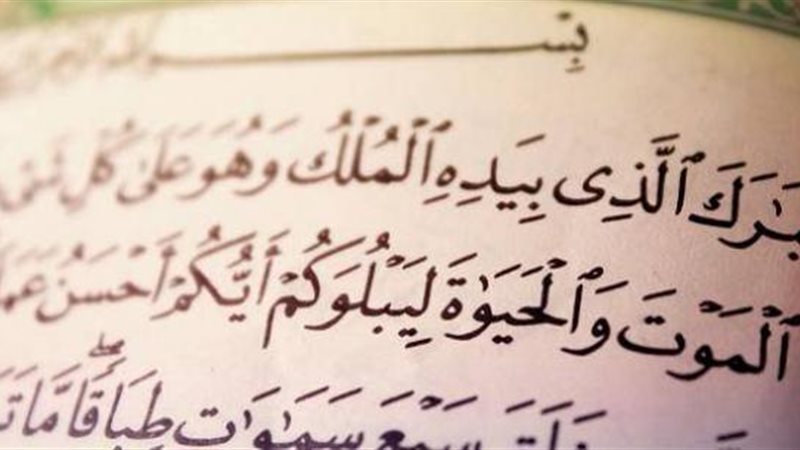 بِسْ
بَٰرَكَ ٱلَّذِى بِيَدِهِ ٱلْمُلْكُ وَهُوَ عَلَىٰ كُلِّ شَىْ
ٱلْمَوْتَ وَٱلْحَيَوٰةَ لِيَبْلُوَكُمْ أَيُّكُمْ أَحْسَنُ عَمَلًا
سَبْعَ سَمَٰوَٰتٍ طِبَاقًا ۖ مَّا تَ